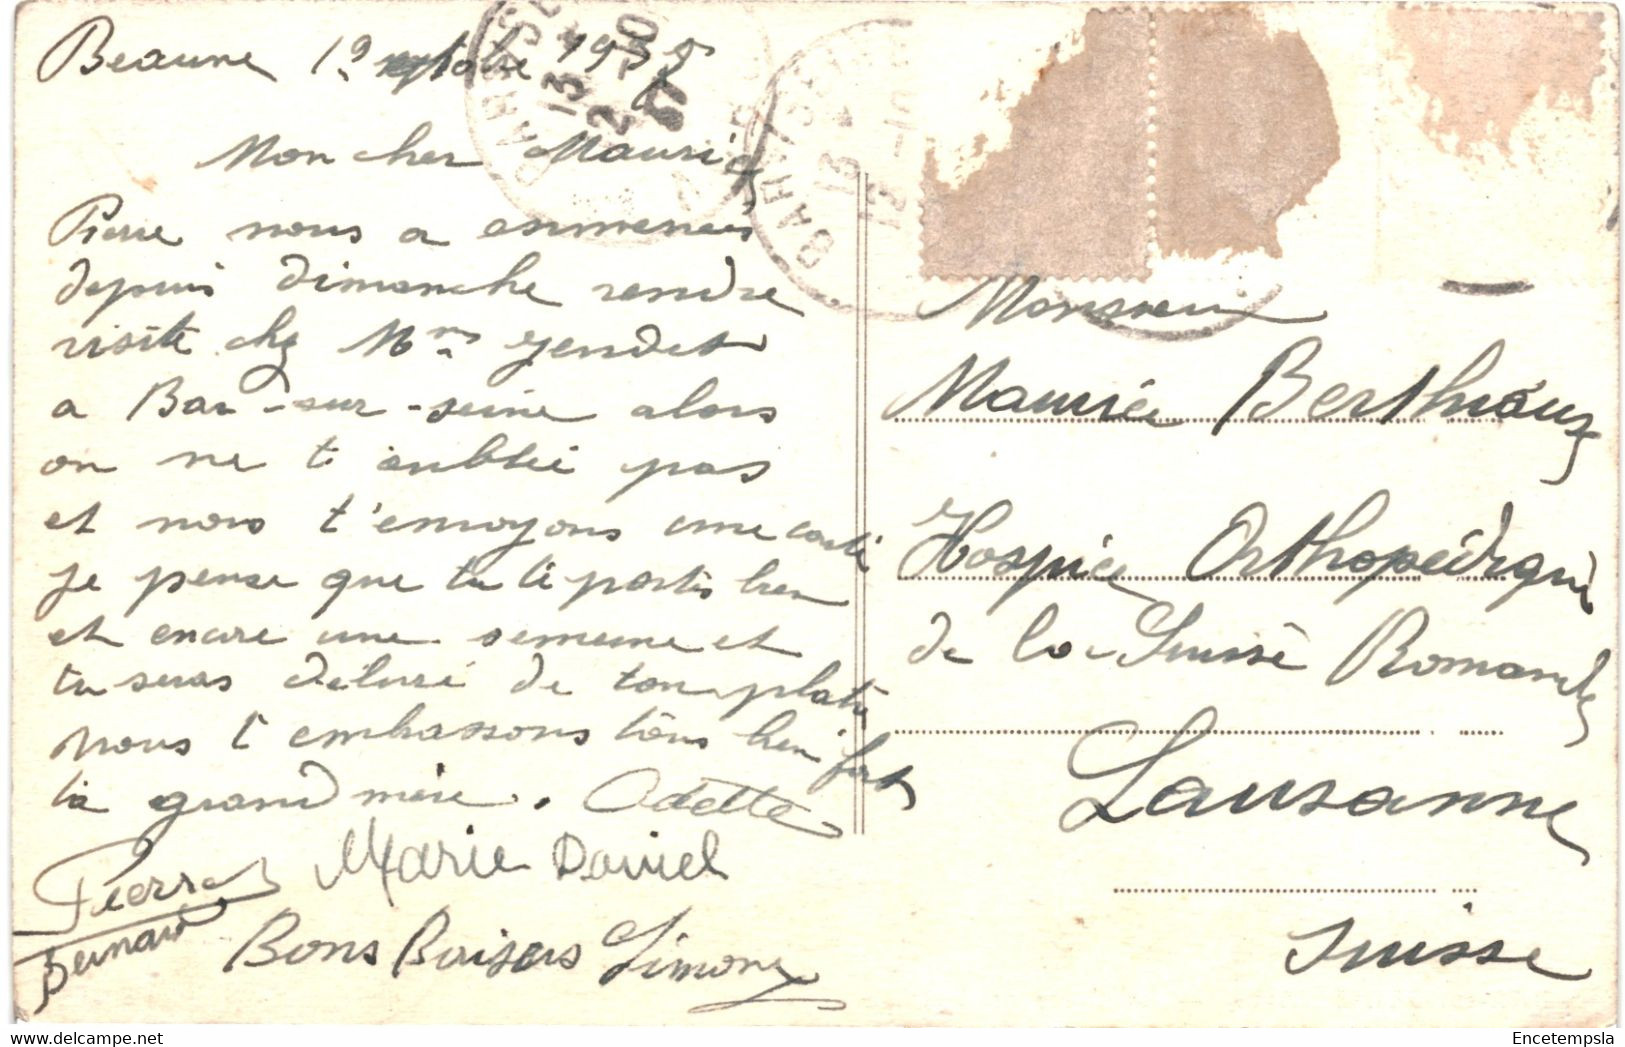 Beaune 1º octobre 1935
Mon cher Maurice
Pierre nous a emmenés
depuis dimanche rendre
visite chez Mme Gendet
a Bar-sur-seine alors
on ne t'oublié pas
et nous t'envoyons une carte
je pense que tu te portes bien
et encore une semaine et
tu seras déluré de ton platre
nous t'embrassons tous bien fort
ta grand mère. Odette
Pierre Marie Daniel
Bernard Bons Baisers Simone
BAR-S-SEINE
13
2 -10
BAR-S-SE
13
2 -10
Monsieur
Maurice Berthiaux
Hospice Orthopédique
de la Suisse Romande
Lausanne
Suisse
Encetempsla